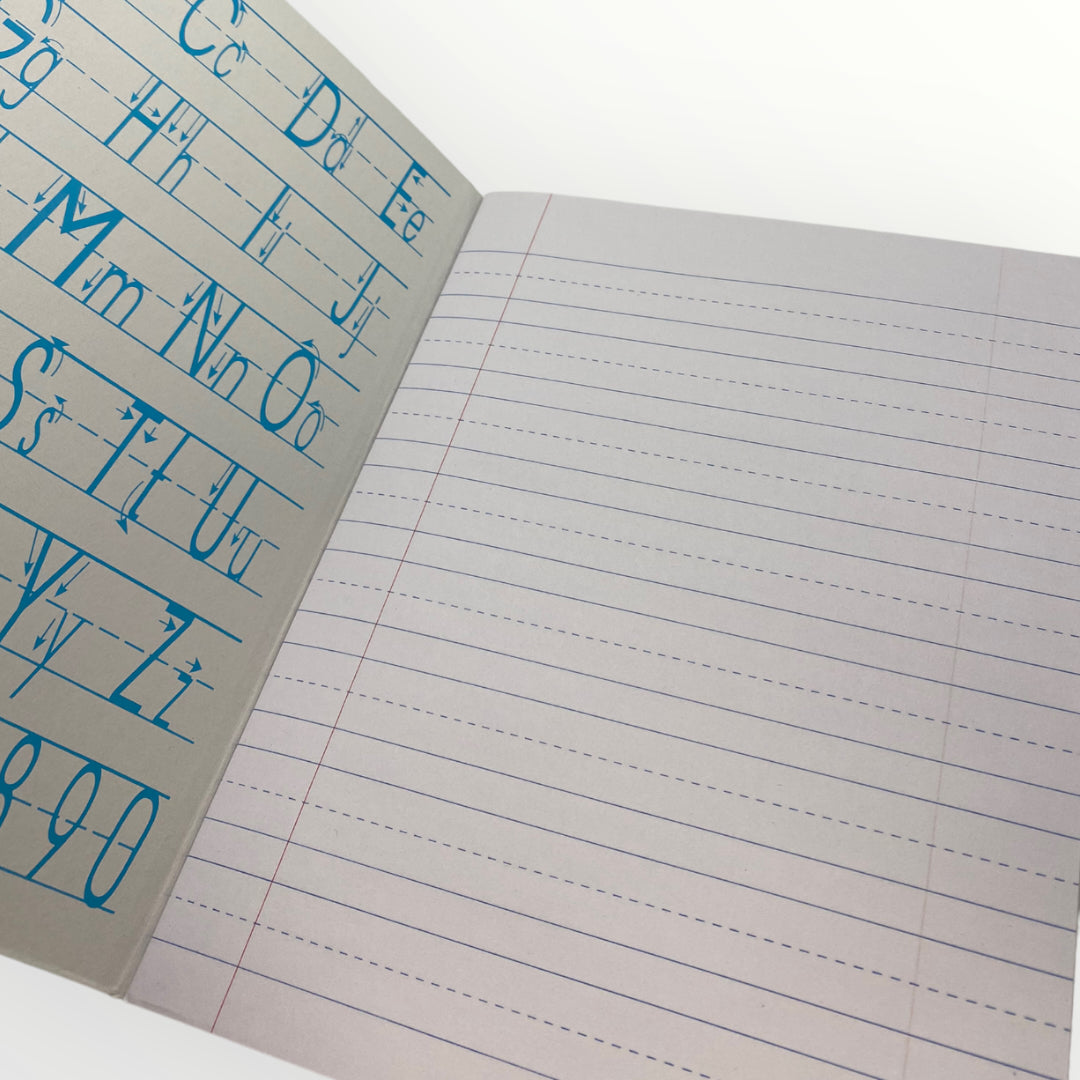 Cc Dd Ee
Gg Hh Ii Jj
Mm Nn Oo
Ss Tt Uu
Yy Zz
8 9 0